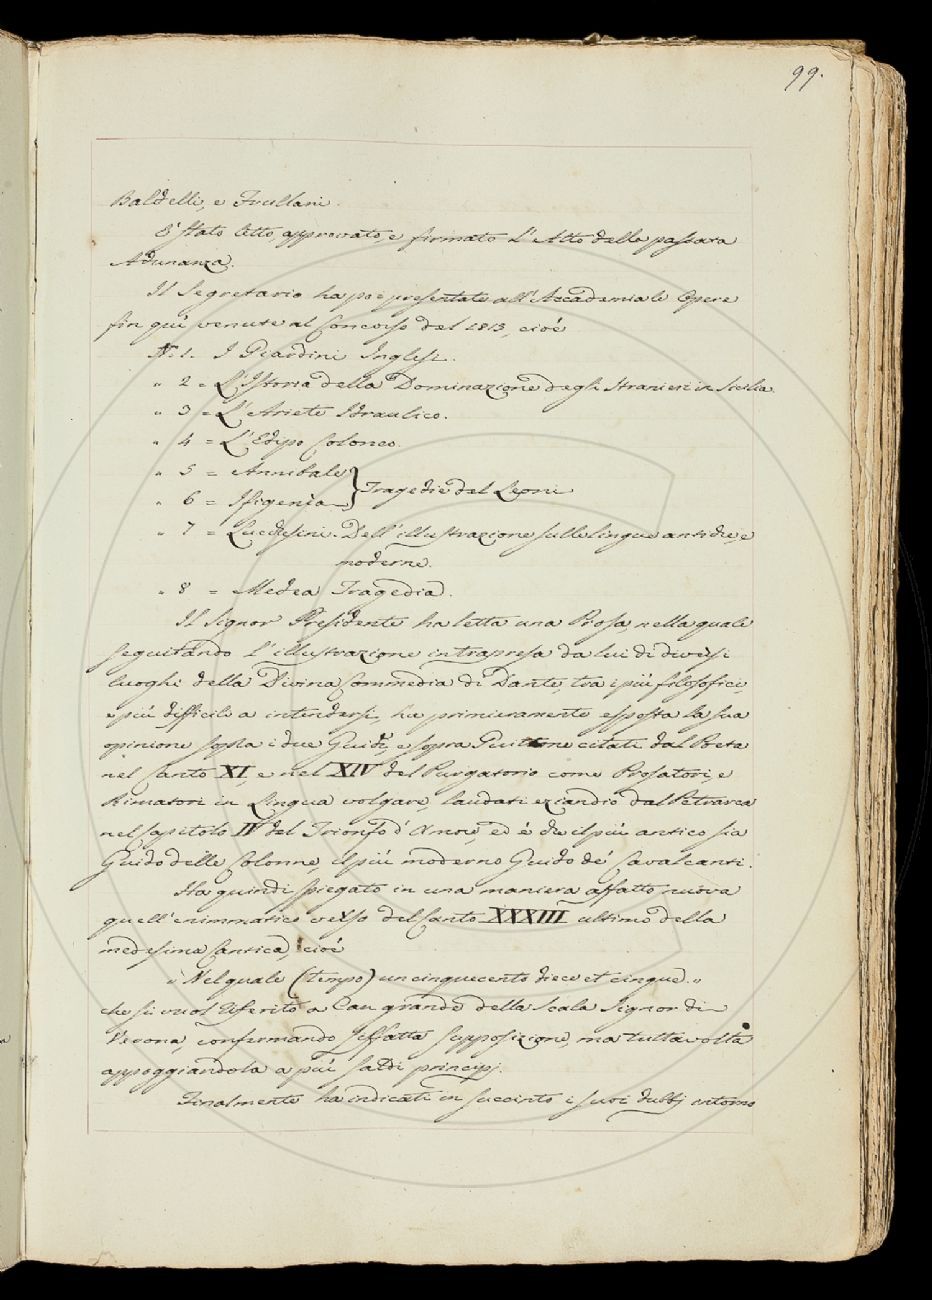 99.
Baldelli, e Frullani.
È stato letto, approvato, e firmato l'Atto della passata
Adunanza.
Il Segretario ha poi presentate all'Accademia le Opere
fin quì venute al Concorso del 1813, cioè
N. 1. I Giardini Inglesi.
" 2 = L'Istoria della Dominazione degli Stranieri in Sicilia
" 3 = L'Ariete Idraulico.
" 4 = L'Edipo Coloneo.
" 5 = Annibale
" 6 = Ifigenia } Tragedie del Leoni
" 7 = Lucchesini. Dell'illustrazione sulle lingue antiche, e
moderne.
" 8 = Medea Tragedia.
Il Signor Presidente ha letta una Prosa, nella quale
seguitando l'illustrazione intrapresa da lui di diversi
luoghi della Divina Commedia di Dante, tra i più filosofici,
e più difficili a intendersi, ha primieramente esposta la sua
opinione sopra i due Guidi, e sopra Guittone citati dal Poeta
nel Canto XI, e nel XIV del Purgatorio come Prosatori, e
Rimatori in Lingua volgare, laudati eziandio dal Petrarca
nel Capitolo IV del Trionfo d'Amore, ed è che il più antico sia
Guido delle Colonne, il più moderno Guido de' Cavalcanti.
Ha quindi spiegato in una maniera affatto nuova
quell'enimmatico verso del Canto XXXIII ultimo della
medesima Cantica, cioè
" Nel quale (tempo) un cinquecento diece et cinque. "
che si vuol riferito a Can grande della Scala Signor di
Verona, confermando siffatta supposizione, ma tuttavolta
appoggiandola a più saldi principj.
Finalmente ha indicati in succinto i suoi dubbj intorno